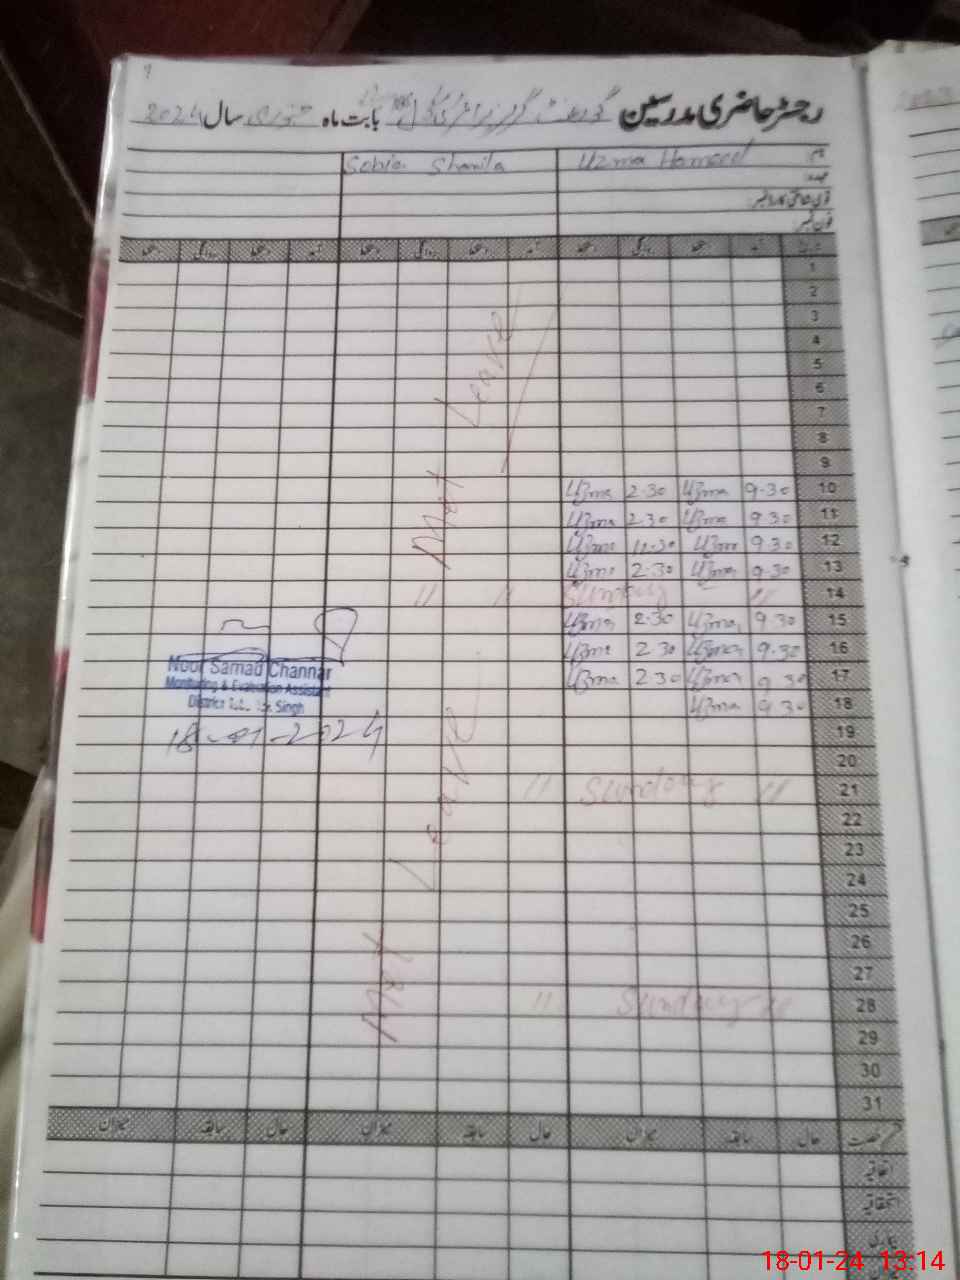 رجسٹر حاضری مدرسین گورنمنٹ گرلز پرائمری سکول بابت ماہ جنوری سال 2024
نام Uzma Hameed Sobia Shamila
عہدہ:
قومی شناختی کارڈ نمبر:
فون نمبر:
تاریخ آمد دستخط روانگی دستخط آمد دستخط روانگی دستخط آمد دستخط روانگی دستخط
1
2
3
4
5
6
7
8
9
Met Leave
10 9.30 Uzma 2.30 Uzma
11 9.30 Uzma 2.30 Uzma
12 9.30 Uzma 11.30 Uzma
13 9.30 Uzma 2.30 Uzma
14 " Sunday " "
15 9.30 Uzma 2.30 Uzma
16 9.30 Uzma 2.30 Uzma
17 9.30 Uzma 2.30 Uzma
18 9.30 Uzma
Noor Samad Channar
Monitoring & Evaluation Assistant
District Singh
18-01-2024
19
20
21 " Sunday "
22
23
24
25
26
27
28 " Sunday "
29
30
31
Met Leave
رخصت حال سابقہ میزان حال سابقہ میزان حال سابقہ میزان
اتفاقیہ
استحقاقیہ
بیماری
18-01-24 13:14